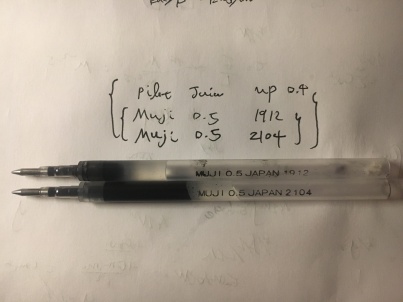 Pilot Juice up 0.4
Muji 0.5 1912
Muji 0.5 2104
MUJI 0.5 JAPAN 1912
MUJI 0.5 JAPAN 2104